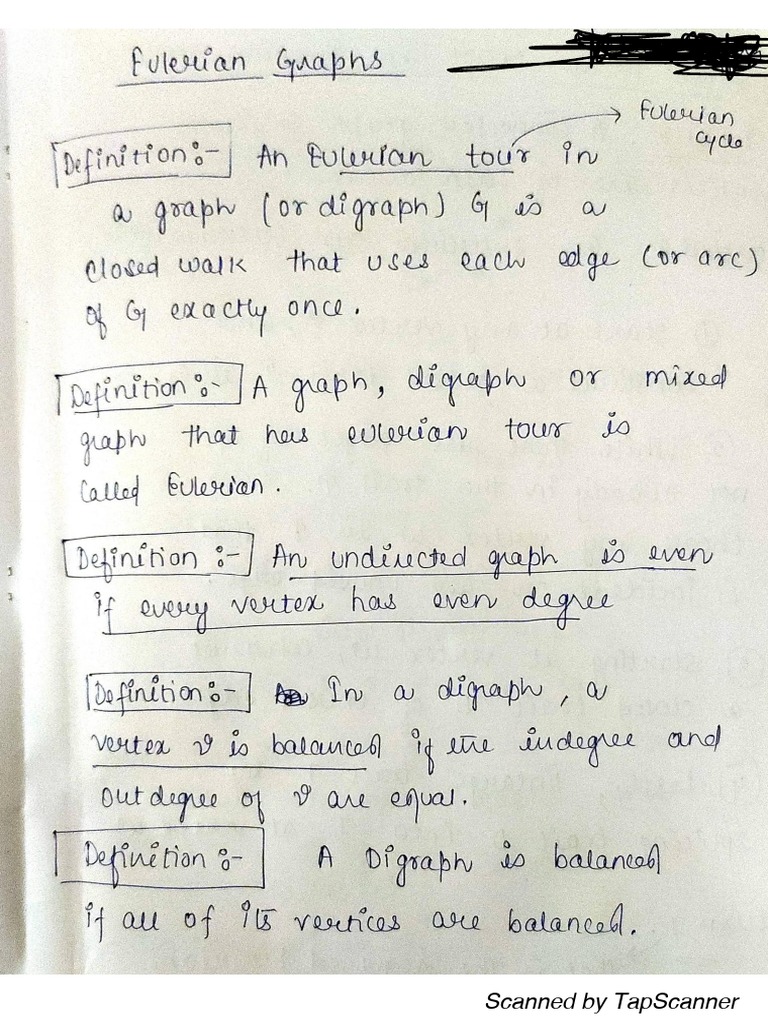 Eulerian Graphs
Eulerian
cycle
Definition:- An Eulerian tour in
a graph (or digraph) G is a
closed walk that uses each edge (or arc)
of G exactly once.
Definition:- A graph, digraph or mixed
graph that has eulerian tour is
called Eulerian.
Definition :- An undirected graph is even
if every vertex has even degree
Definition:- In a digraph, a
vertex v is balanced if the indegree and
outdegree of v are equal.
Definition :- A Digraph is balanced
if all of its vertices are balanced.
Scanned by TapScanner